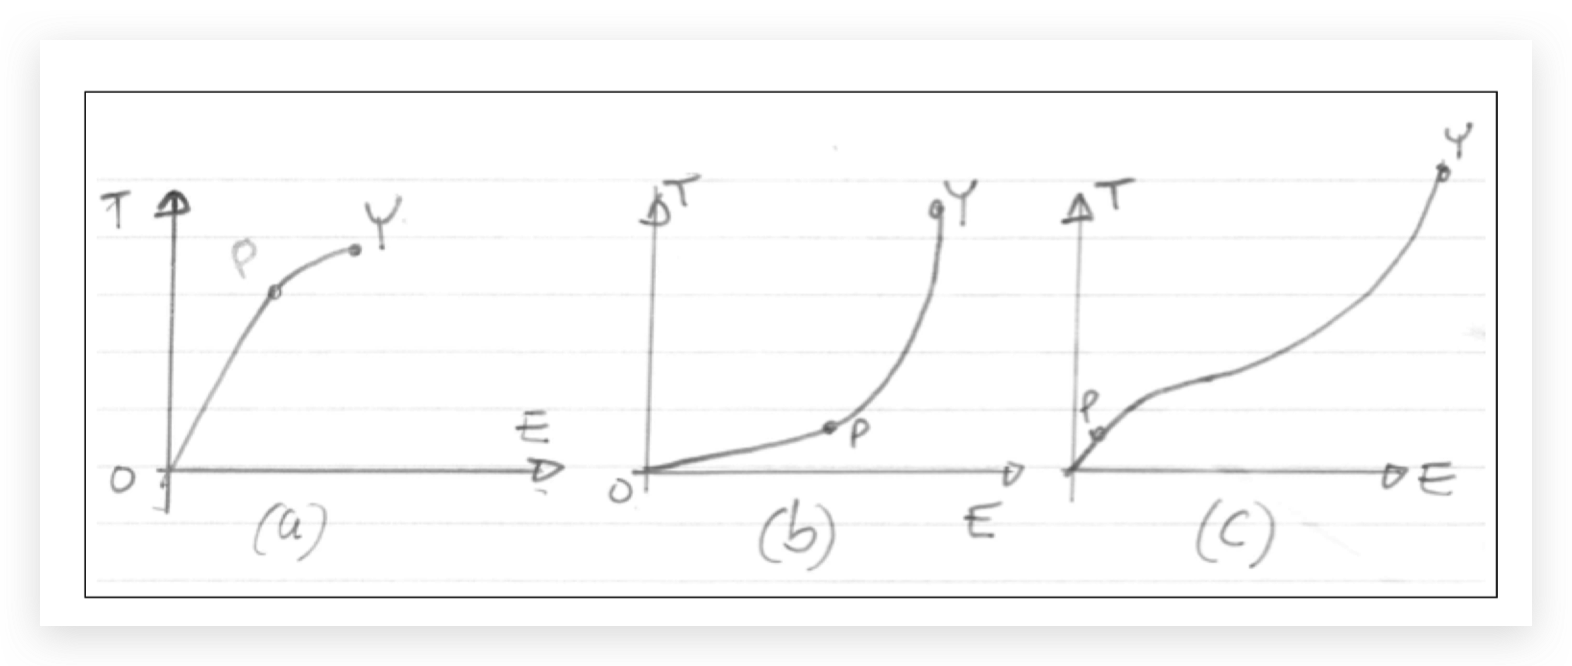 T P Y E O (a)
T Y P O E (b)
T Y P E (c)